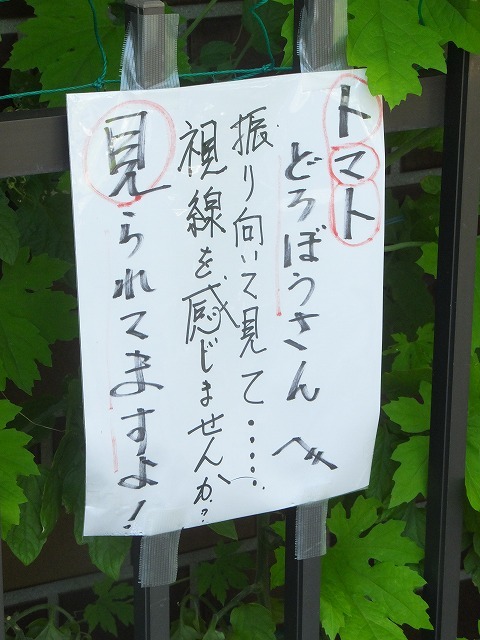 トマト
どろぼうさんへ
振り向いて見て……
視線を感じませんか?
見られてますよ!